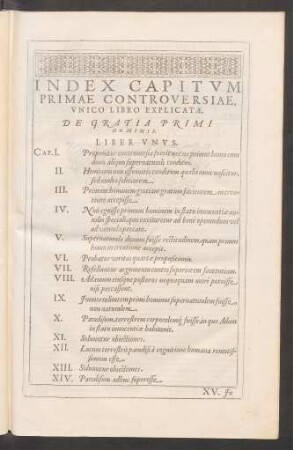 INDEX CAPITVM
PRIMAE CONTROVERSIAE,
VNICO LIBRO EXPLICATÆ.
DE GRATIA PRIMI
HOMINIS.
LIBER VNVS.
CAP. I. Proponitur controversia fueritne primus homo cum
dono aliquo supernaturali conditus.
II.
III. Primum hominem gratiam gratum facientem in creatione
accepisse.
IV. Non eguisse primum hominem in statu innocentiæ auxilio
speciali, quo excitaretur ad bene operandum vel
ad
V. Supernaturale donum fuisse rectitudinem, quam primus
homo in creatione accepit.
VI. Probatur veritas quartæ propositionis.
VII. Refelluntur argumenta contra superiorem sententiam.
VIII. Adamum ciusque posteros nunquam mori potuisse
nisi peccassent.
IX. Immortalitatem primi hominis supernaturalem fuisse
non naturalem.
X. Paradisum terrestrem corporalemque fuisse in quo Adam
in statu innocentiæ habitavit.
XI. Solvuntur obiectiones.
XII. Locum terrestris paradisi à cognitione humana remotissimum
esse.
XIII. Solvuntur obiectiones.
XIV. Paradisum adhuc superesse.
XV. Fr